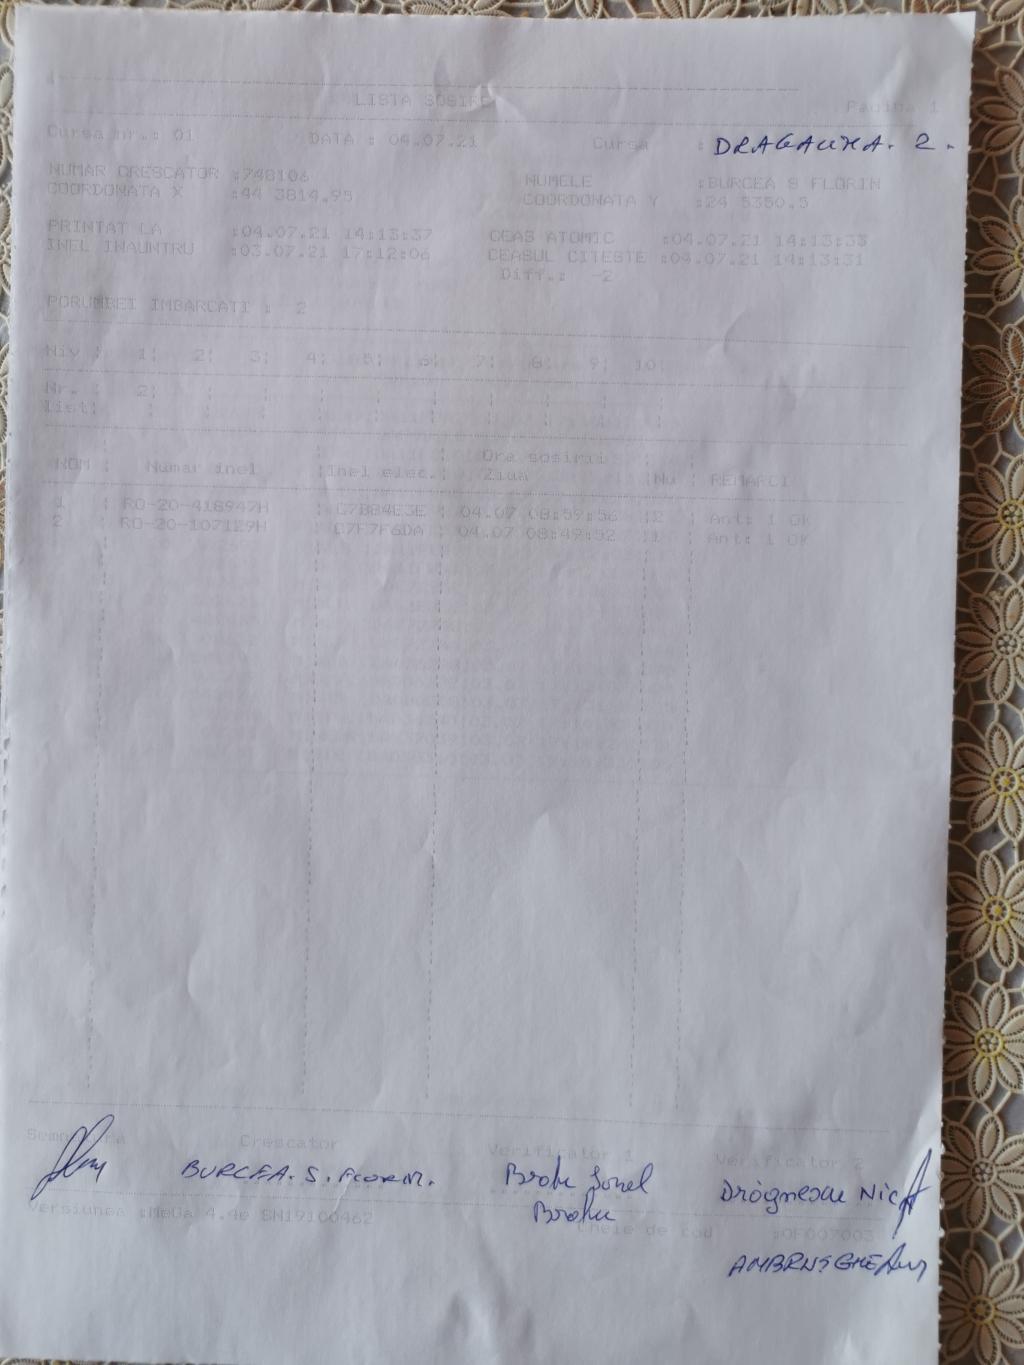 LISTA SOSIRE Pagina 1
Cursa nr.: 01 DATA : 04.07.21 Cursa : DRAGALINA. 2.
NUMAR CRESCATOR :748106 NUMELE :BURCEA S FLORIN
COORDONATA X :44 3814.95 COORDONATA Y :24 5350.5
PRINTAT LA :04.07.21 14:13:37 CEAS ATOMIC :04.07.21 14:13:33
INEL INAUNTRU :03.07.21 17:12:06 CEASUL CITESTE :04.07.21 14:13:31
Diff.: -2
PORUMBEI IMBARCATI : 2
Niv : 1: 2: 3: 4: 5: 6: 7: 8: 9: 10:
Nr. : 2:
list:
NOM : Numar inel :Inel elec.: Ora sosirii
Ziua :Nu : REMARCI
1 : RO-20-418947H : C7B84E3E : 04.07 08:59:56 :2 : Ant: 1 OK
2 : RO-20-107129H : C7F7F6DA : 04.07 08:49:52 :1 : Ant: 1 OK
Semnatura Crescator Verificator 1 Verificator 2
BURCEA. S. FLORIN.
Versiunea :MeGa 4.4e SN19100462 Cheie de cod :0F007003